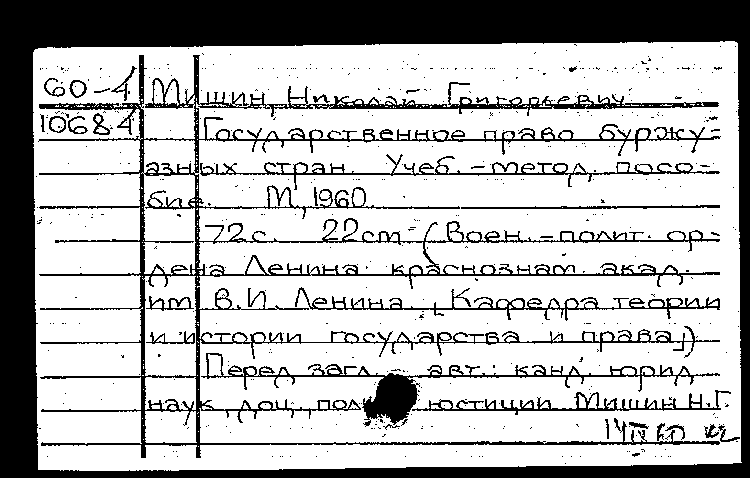 60-4 Мишин, Николай Григорьевич
10684 Государственное право буржу-
азных стран. Учеб.-метод. посо-
бие. М., 1960.
72 с. 22 cm. (Воен.-полит. ор-
дена Ленина краснознам. акад.
им. В.И. Ленина. Кафедра теории
и истории государства и права)
Перед загл. авт.: канд. юрид.
наук, доц., юстиции Мишин Н.Г.